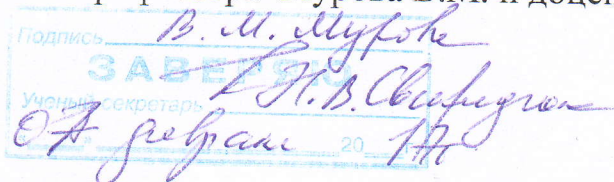 урова В.М. и доцен
Подпись В. М. Мурова
ЗАВЕРЯЮ
Ученый секретарь Н.В. Свиридюк
07 февраля 2017